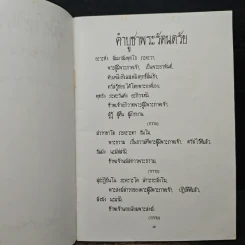 คำบูชาพระรัตนตรัย
อะระหัง สัมมาสัมพุทโธ ภะคะวา,
พระผู้มีพระภาคเจ้า, เป็นพระอรหันต์,
ดับเพลิงกิเลสเพลิงทุกข์สิ้นเชิง,
ตรัสรู้ชอบได้โดยพระองค์เอง,
พุทธัง ภะคะวันตัง อะภิวาเทมิ,
ข้าพเจ้าอภิวาทพระผู้มีพระภาคเจ้า,
ผู้รู้ ผู้ตื่น ผู้เบิกบาน.
(กราบ)
สวากขาโต ภะคะวะตา ธัมโม,
พระธรรม เป็นธรรมที่พระผู้มีพระภาคเจ้า, ตรัสไว้ดีแล้ว,
ธัมมัง นะมัสสามิ,
ข้าพเจ้านมัสการพระธรรม.
(กราบ)
สุปะฏิปันโน ภะคะวะโต สาวะกะสังโฆ,
พระสงฆ์สาวกของพระผู้มีพระภาคเจ้า, ปฏิบัติดีแล้ว,
สังฆัง นะมามิ,
ข้าพเจ้านอบน้อมพระสงฆ์.
(กราบ)